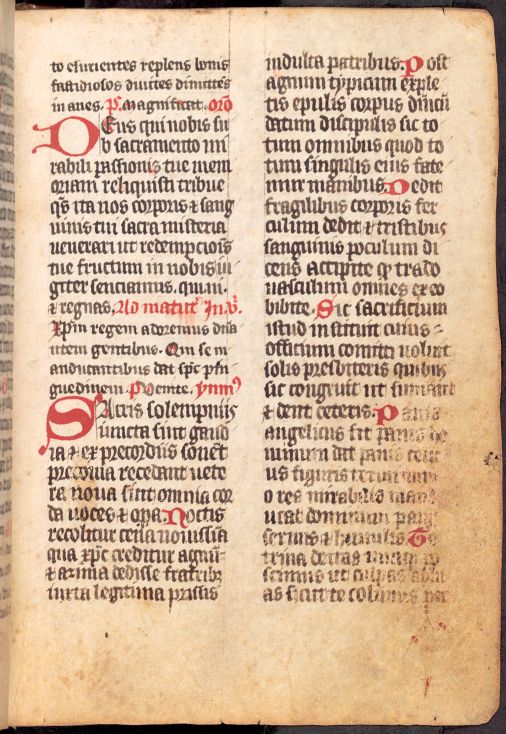 to esurientes replens bonis
fastidiosos divites dimittes
inanes. ps. magnificat. oro
DEus qui nobis su
b sacramento mi
rabili passionis tue mem
oriam reliquisti tribue
qs ita nos corporis ⁊ sang
uinis tui sacra misteria
uenerari ut redempcionis
tue fructum in nobis iu
giter senciamus. qui ui.
⁊ regnas. Ad matut Inv.
xpm regem adoremus dn̄a
ntem gentibus. Qui se m
anducantibus dat spc pin
guedinem. ps Venite. ymn9
SAcris solempniis
iuncta sint gaud
ia ⁊ ex precordiis sonet
preconia recedant uete
ra noua sint omnia cor
da uoces ⁊ opa. Noctis
recolitur cena nouissīa
qua xpc creditur agnū
⁊ azima dedisse fratribz
iuxta legitima priscis
indulta patribus. Post
agnum typicum exple
tis epulis corpus dnicū
datum discipulis sic to
tum omnibus quod to
tum singulis eius fate
mur manibus. Dedit
fragilibus corporis fer
culum dedit ⁊ tristibus
sanguinis poculum di
cens accipite q trado
uasculum omnes ex eo
bibite. Sic sacrificium
istud instituit cuius
officium comitti uoluit
solis presbiteris quibus
sic congruit ut sumant
⁊ dent ceteris. Panis
angelicus fit panis ho
minum dat panis celic
us figuris terminum
o res mirabilis mand
ucat dominum paup
seruus ⁊ humilis. Te
trina deitas unaq po
scimus ut culpas
as sicut te colimus per